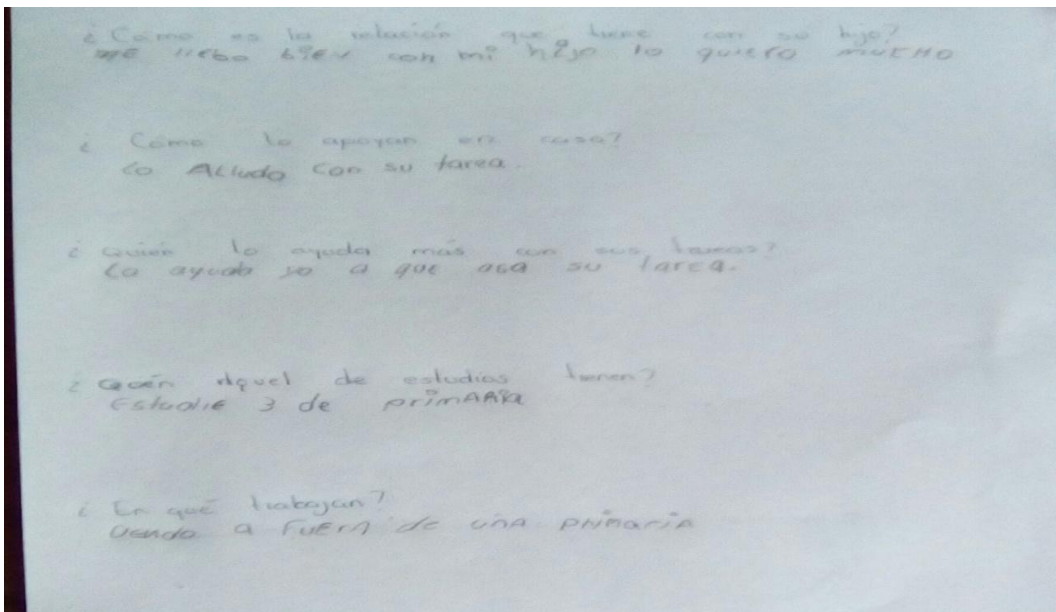 ¿Cómo es la relación que tiene con su hijo?
ME llebo biEN con mi hijo lo quiero mucHO
¿Cómo lo apoyan en casa?
Lo ALludo con su tarea.
¿Quién lo ayuda más con sus tareas?
Lo ayudo yo a que aga su tarea.
de estudios tienen?
Estudie 3 de primARia
¿En qué trabajan?
Vendo a FuERA de unA primariA